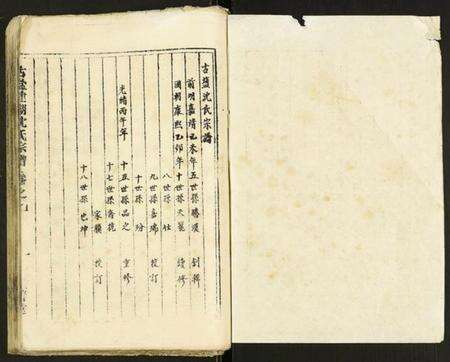 古鹽沈氏宗譜
前明嘉靖乙未年五世孫勝瀛 創輯
國朝康熙乙卯年十世孫天麗 續修
八世孫仕
九世孫嘉瑞 校訂
十世孫珍
光緒丙午年
十五世孫品之 重修
十七世孫喬
家積 校訂
十八世孫也坤
沈氏宗譜 卷之九